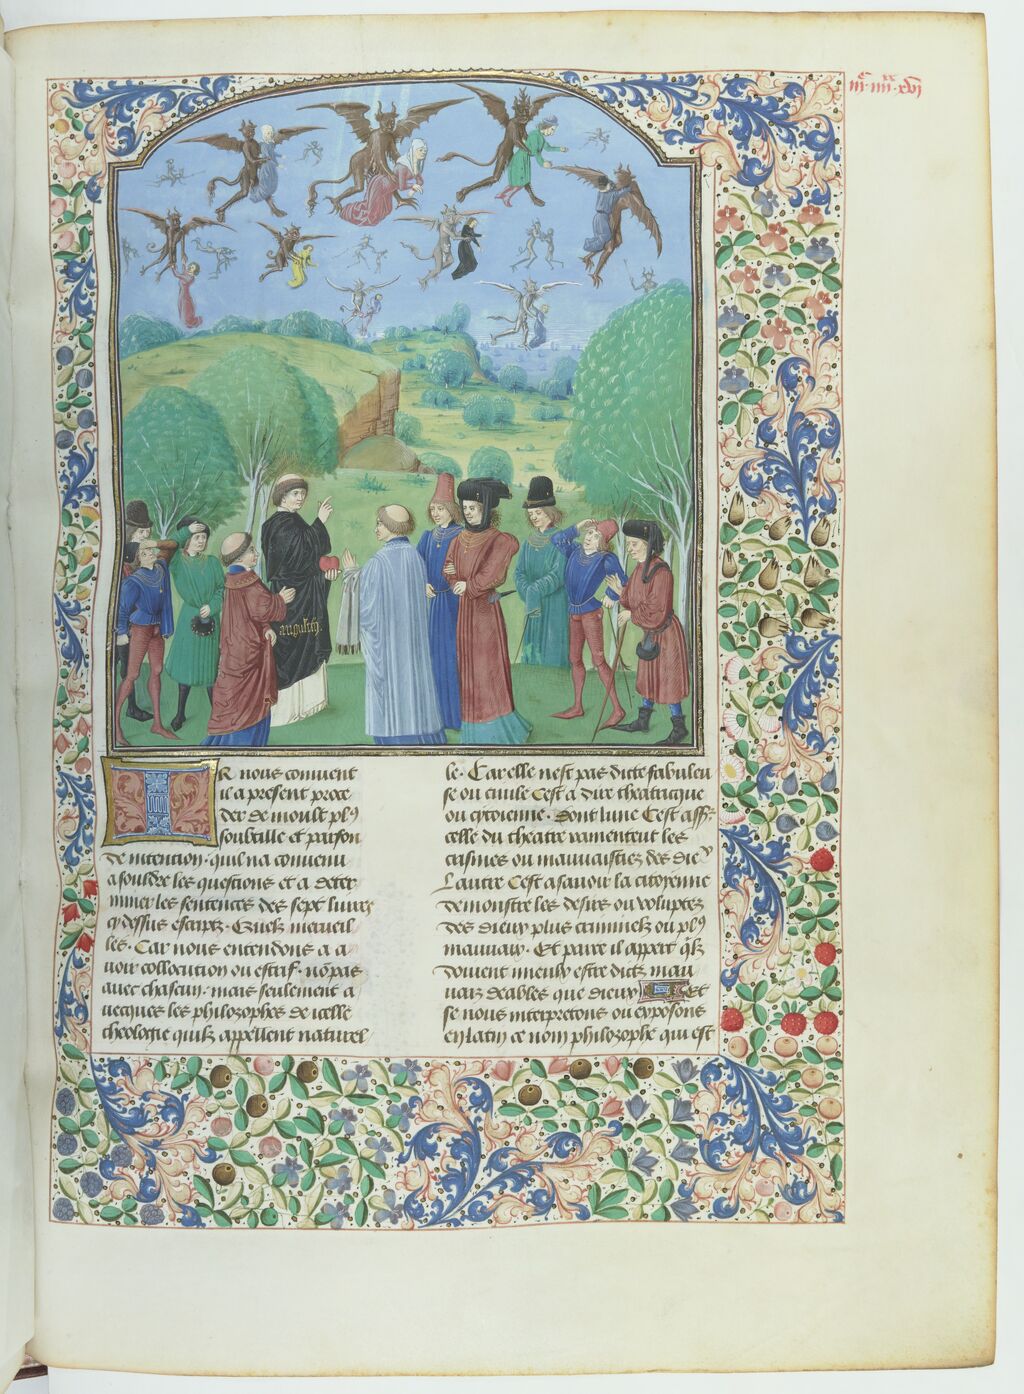 iiiᶜ iiiiˣˣ xvi
augustin
Or nous convient
il a present proce
der de moult plꝰ
soubtille et parfon
de intention. quil na convenu
a souldre les questions et a deter
miner les sentences des sept livres
cy dessus escriptz. Quelz merveil
les. Car nous entendons a a
voir collocution ou estrif. nō pas
avec chascun. mais seulement a
vecques les philozophes de icelle
theologie quilz appellent naturel
le. Car elle nest pas dicte fabuleu
se ou civile Cest a dire theatrique
ou cytoienne. Dont lune Cest assr̄
celle du theatre ramentent les
crismes ou mauvaistiez des dieˣ
Lautre Cest asavoir la citoyenne
demonstre les desirs ou voluptez
des dieux plus criminelz ou plꝰ
mauvaix. Et parce il appert q̄lz
doivent mieulx estre dictz mau
vaiz deables que dieux Et
se nous interpretons ou exposons
en latin ce nom philozophe qui est